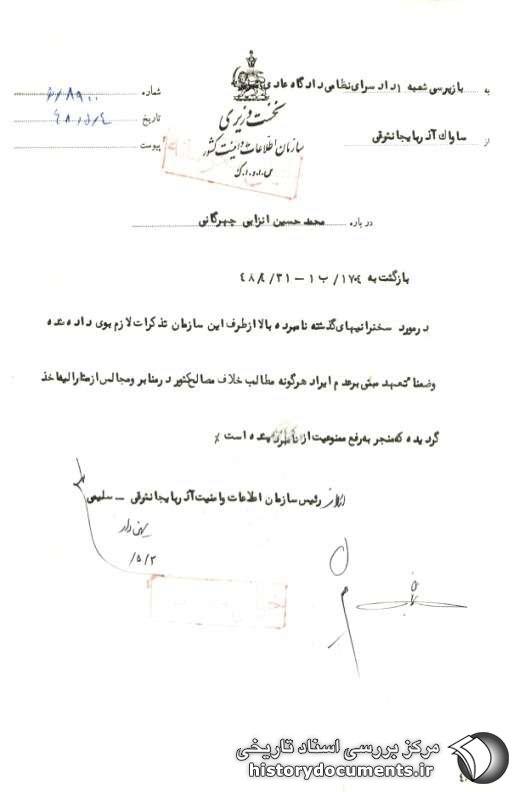 به بازپرسی شعبه ۱ دادسرای نظامی دادگاه عادی
شماره
نخست وزیری
تاریخ ۴۸/۵/۴
از ساواك آذربایجانشرقی
سازمان اطلاعات و امنیت کشور
پیوست
س.ا.و.ا.ک
درباره محمد حسین انزابی چهرگانی
بازگشت به ۱۷۰۴/ب ۱ – ۴۸/۴/۳۱
درمورد سخنرانیهای گذشته نامبرده بالا ازطرف این سازمان تذکرات لازم بوی داده شده
وضمنا تعهد مبنی برعدم ایراد هرگونه مطالب خلاف مصالح کشور درمنابر ومجالس از مشارالیه اخذ
گردیده که منجر به رفع ممنوعیت از نامبرده شده است
رئیس سازمان اطلاعات وامنیت آذربایجانشرقی – سلیمی
۵/۲/
مرکز بررسی اسناد تاریخی
historydocuments.ir